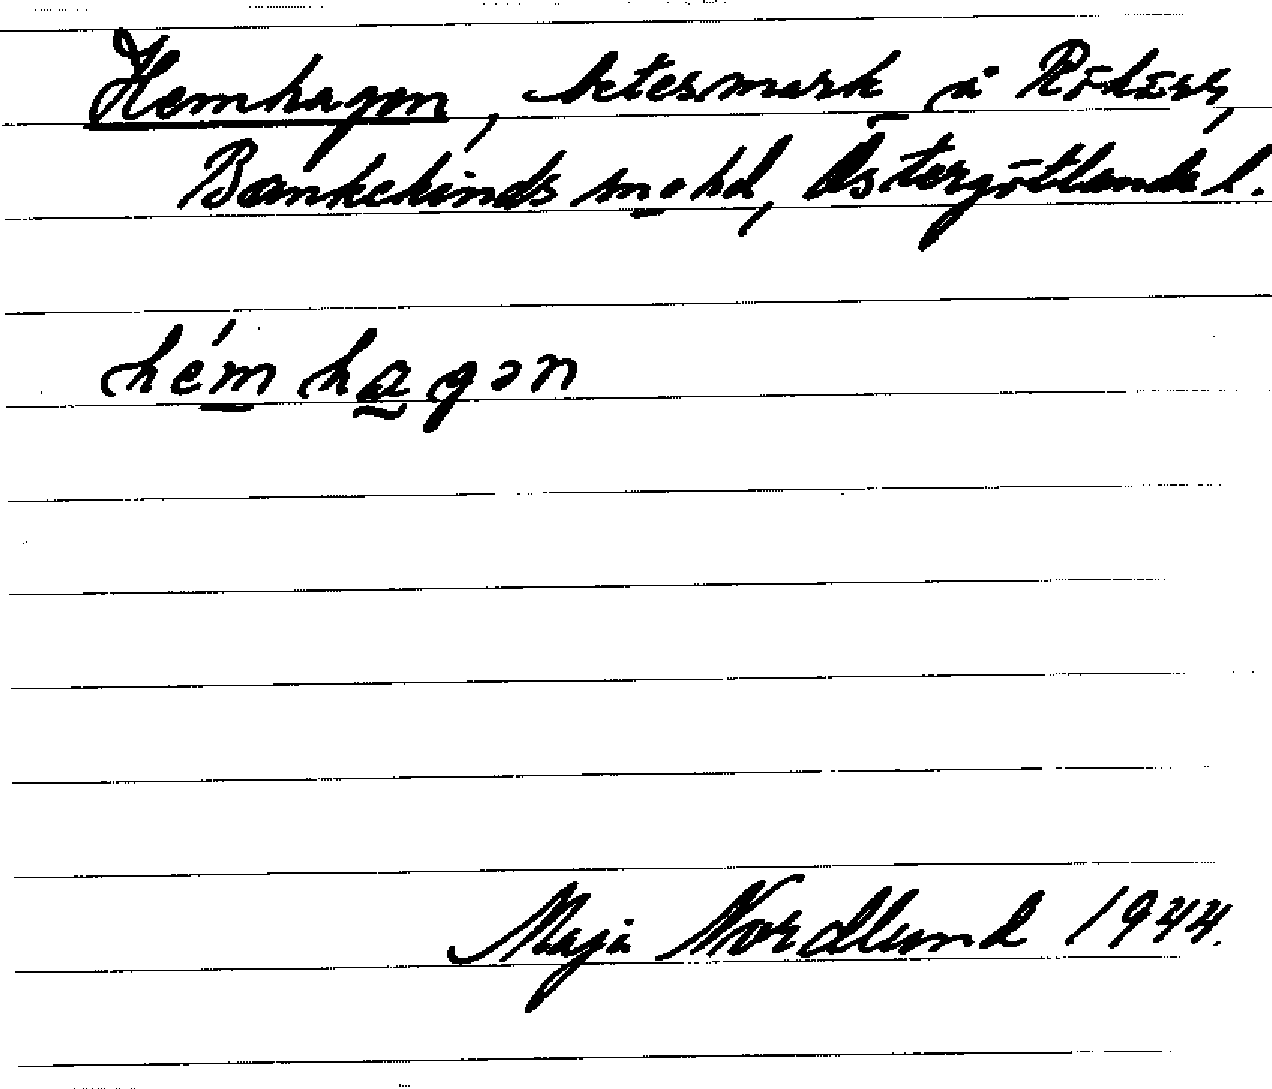 Hemhagen, betesmark å Rödörs,
Bankekinds sn o hd, Östergötlands l.
hém hagən
Maja Nordlund 1944.